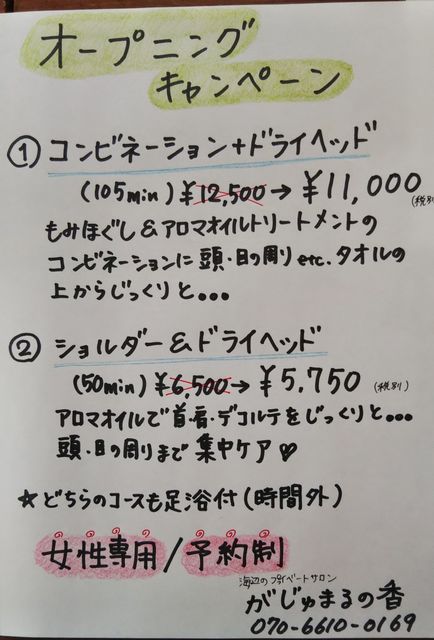 オープニング
キャンペーン
① コンビネーション+ドライヘッド
(105min) ¥12,500→ ¥11,000
(税別)
もみほぐし&アロマオイルトリートメントの
コンビネーションに 頭・目の周り etc. タオルの
上からじっくりと...
② ショルダー&ドライヘッド
(50min) ¥6,500→ ¥5,750 (税別)
アロマオイルで 首・肩・デコルテをじっくりと...
頭・目の周りまで 集中ケア♡
☆どちらのコースも足浴付(時間外)
女性専用/予約制
海辺のプライベートサロン
がじゅまるの香
070-6610-0169